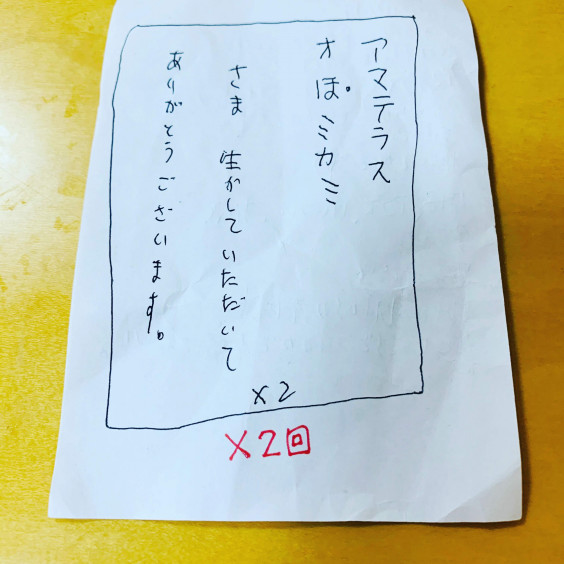 アマテラス
オぽミカミ
さま 生かしていただいて
ありがとうございます。
×2
×2回